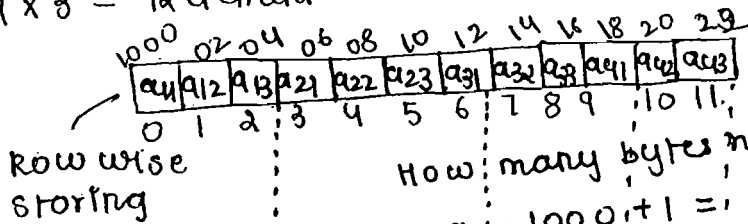 4 x 3 = 12
1000 02 04 06 08 10 12 14 16 18 20 22
a11 a12 a13 a21 a22 a23 a31 a32 a33 a41 a42 a43
0 1 2 3 4 5 6 7 8 9 10 11
Row wise
storing
How many bytes
1000 + 1 =